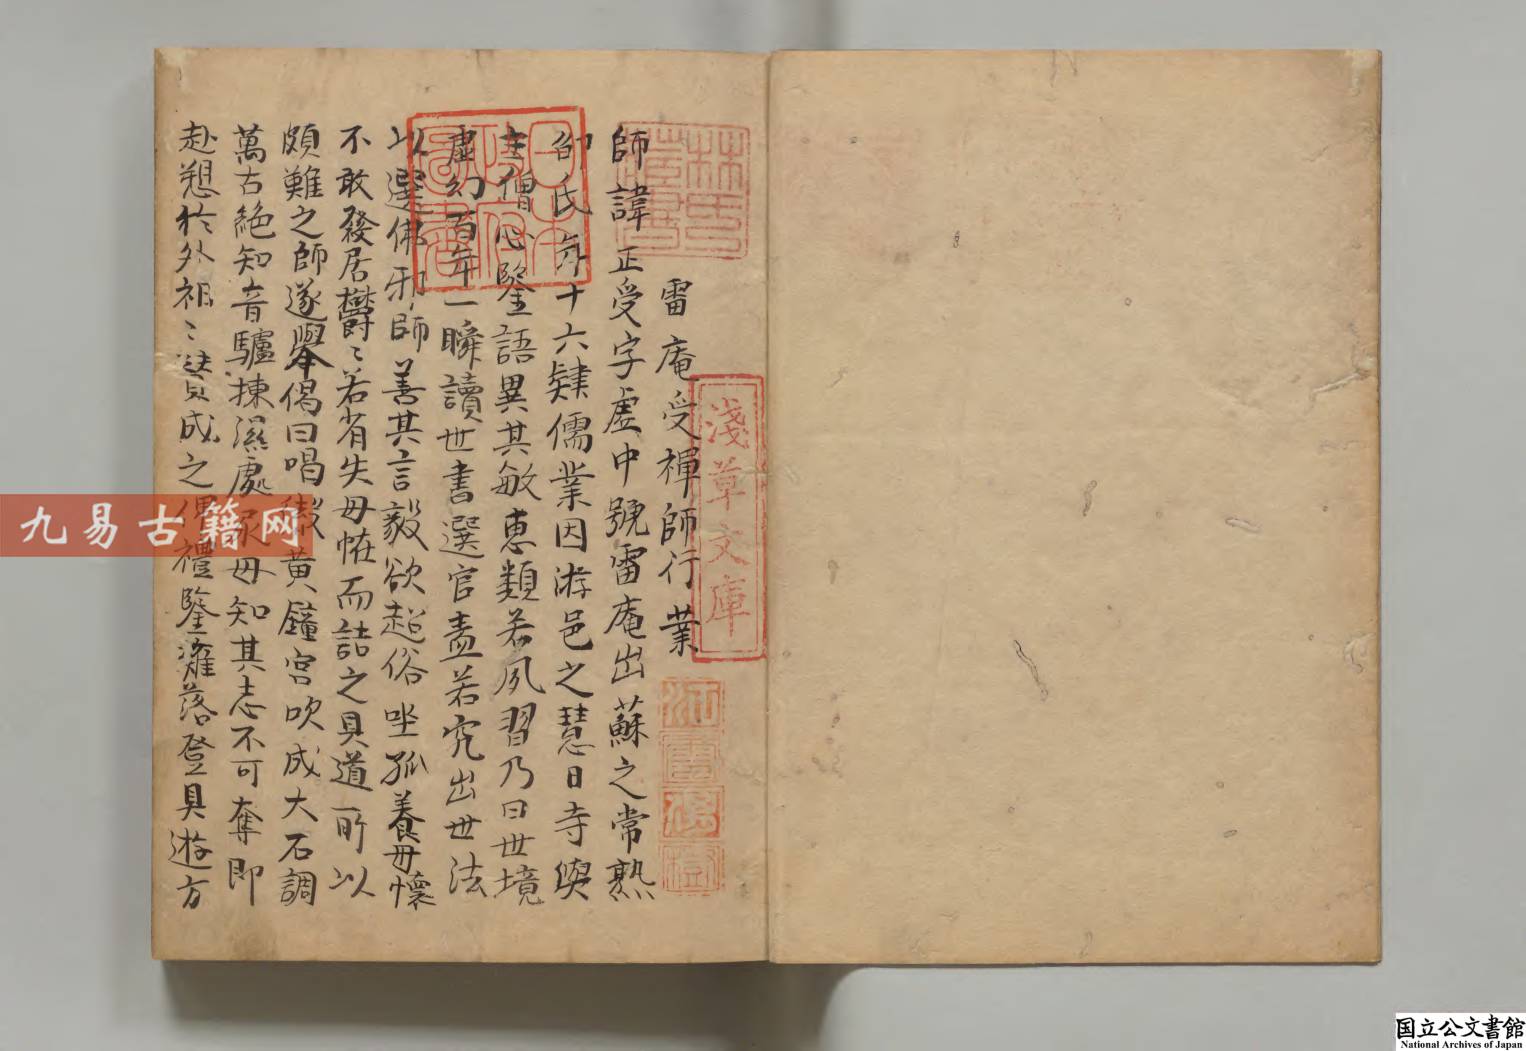 雷庵受禅師行業
師諱正受字虛中號雷庵出蘇之常熟
邵氏年十六肄儒業因游邑之慧日寺與
主僧心鑒語異其敏惠類若夙習乃曰世境
虛幻百年一瞬讀世書選官盍若究出世法
以選佛邪師善其言毅欲超俗坐孤養毋懷
不敢發居欝〻若有失毋恠而詰之具道所以
頗難之師遂舉偈曰喝黄鐘宮吹成大石調
萬古絶知音驢揀濕處毋知其志不可奪即
赴愬於外祖〻賛成之禮鑒薙落登具遊方
林氏藏書
日本政府圖書
淺草文庫
九易古籍网
国立公文書館
National Archives of Japan